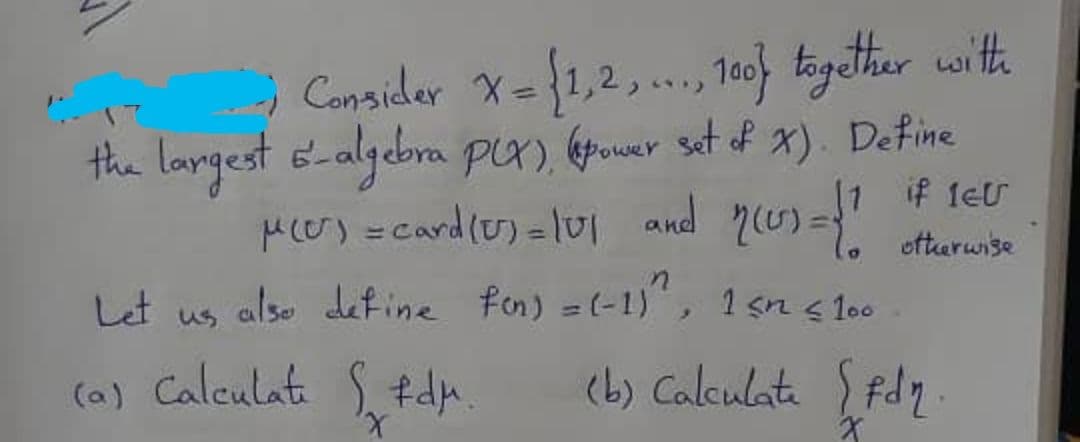 Consider X = {1,2, ..., 100} together with
the largest σ-algebra P(X), (power set of X). Define
μ(U) = card(U) = |U| and η(U) = { 1 if 1∈U
0 otherwise
Let us also define f(n) = (-1)^n, 1 ≤ n ≤ 100.
(a) Calculate ∫_X f dμ. (b) Calculate ∫_X f dη.